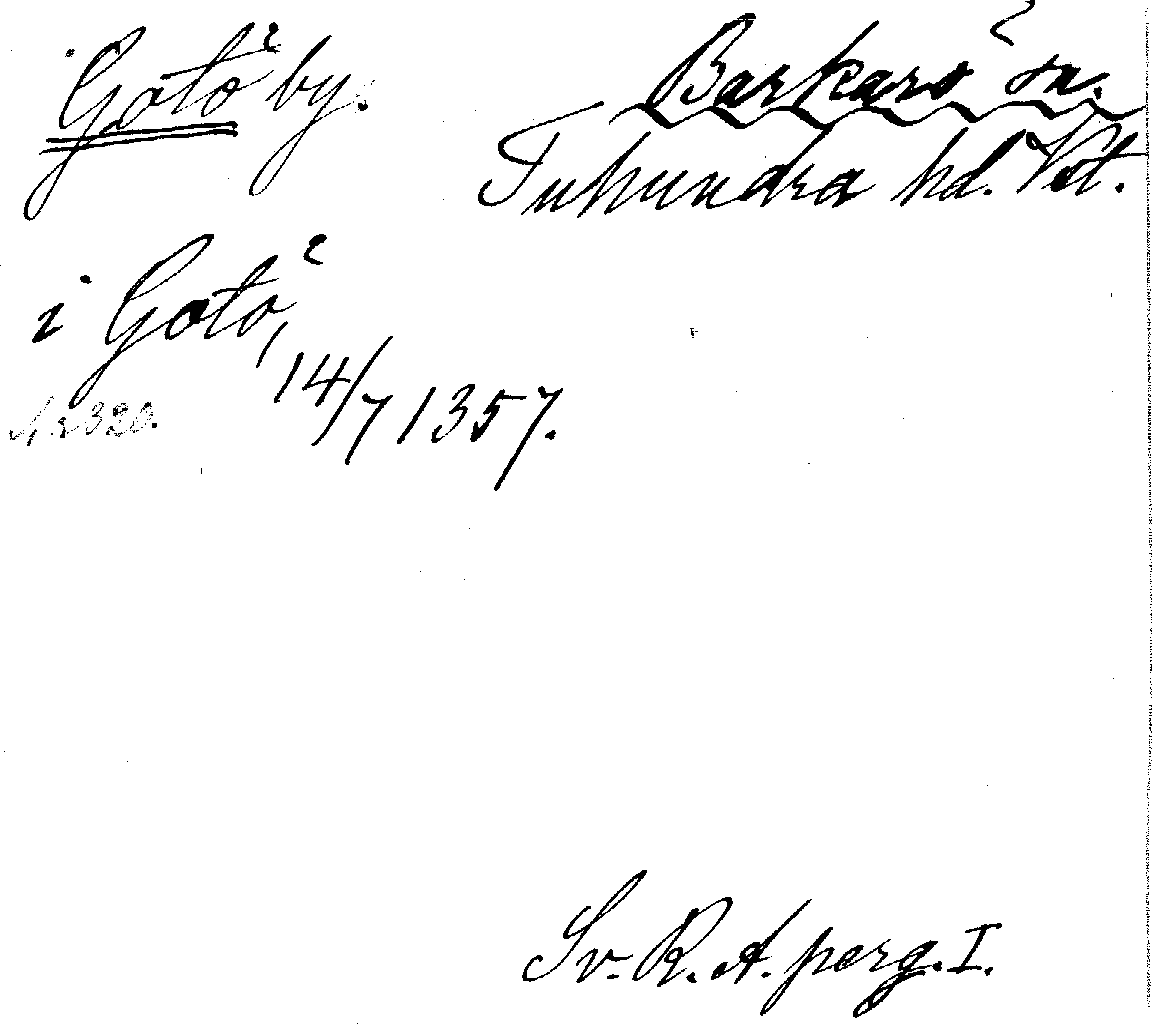 Götö by.
Barkarö sn.
Tuhundra hd. Vstl.
i Gotö,
14/7 1357.
Nr 320.
Sv. R. A. perg. I.